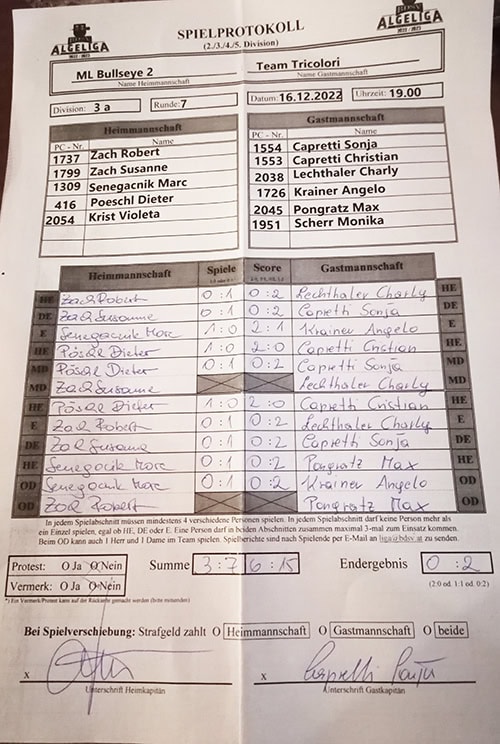 ALGELIGA
SPIELPROTOKOLL
ALGELIGA
(2./3./4./5. Division)
ML Bullseye 2
Team Tricolori
Name Heimmannschaft
Name Gastmannschaft
Division: 3 a
Runde: 7
Datum: 16.12.2022
Uhrzeit: 19.00
Heimmannschaft
Gastmannschaft
PC - Nr. Name
PC - Nr. Name
1737 Zach Robert
1554 Capretti Sonja
1799 Zach Susanne
1553 Capretti Christian
1309 Senegacnik Marc
2038 Lechthaler Charly
416 Poeschl Dieter
1726 Krainer Angelo
2054 Krist Violeta
2045 Pongratz Max
1951 Scherr Monika
Heimmannschaft Spiele Score Gastmannschaft
HE Zach Robert 0:1 0:2 Lechthaler Charly HE
DE Zach Susanne 0:1 0:2 Capretti Sonja DE
E Senegacnik Marc 1:0 2:1 Krainer Angelo E
HE Pöschl Dieter 1:0 2:0 Capretti Cristian HE
MD Pöschl Dieter 0:1 0:2 Capretti Sonja MD
MD Zach Susanne Lechthaler Charly MD
HE Pöschl Dieter 1:0 2:0 Capretti Cristian HE
E Zach Robert 0:1 0:2 Lechthaler Charly E
DE Zach Susanne 0:1 0:2 Capretti Sonja DE
HE Senegacnik Marc 0:1 0:2 Pongratz Max HE
OD Senegacnik Marc 0:1 0:2 Krainer Angelo OD
OD Zach Robert Pongratz Max OD
In jedem Spielabschnitt müssen mindestens 4 verschiedene Personen spielen. In jedem Spielabschnitt darf keine Person mehr als
ein Einzel spielen, egal ob HE, DE oder E. Eine Person darf in beiden Abschnitten zusammen maximal 3-mal zum Einsatz kommen.
Beim OD kann auch 1 Herr und 1 Dame im Team spielen. Spielberichte sind nach Spielende per E-Mail an liga@bdsv.at zu senden.
Protest: O Ja O Nein
Summe 3:7 6:15
Endergebnis 0:2
Vermerk: O Ja O Nein
(2:0 od. 1:1 od. 0:2)
*) Ein Vermerk/Protest kann auf der Rückseite gemacht werden (bitte ankreuzen)
Bei Spielverschiebung: Strafgeld zahlt O Heimmannschaft O Gastmannschaft O beide
x
x Capretti Sonja
Unterschrift Heimkapitän
Unterschrift Gastkapitän